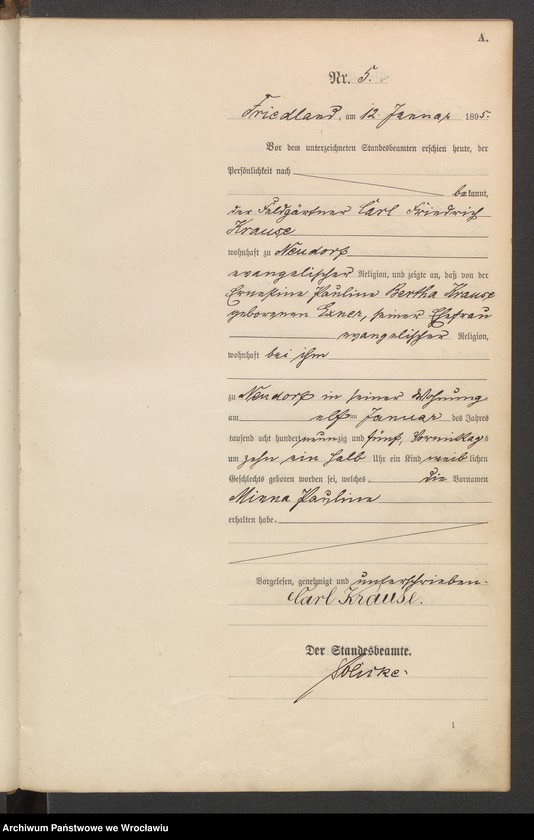 A.
Nr. 5.
Friedland, am 12. Januar 1895.
Vor dem unterzeichneten Standesbeamten erschien heute, der
Persönlichkeit nach
bekannt,
der Feldgärtner Carl Friedrich
Krause
wohnhaft zu Neudorf
evangelischer Religion, und zeigte an, daß von der
Ernestine Pauline Bertha Krause
geborenen Exner, seiner Ehefrau
evangelischer Religion,
wohnhaft bei ihm
zu Neudorf in seiner Wohnung
am elften Januar des Jahres
tausend acht hundert neunzig und fünf, Vormittags
um zehn ein halb Uhr ein Kind weiblichen
Geschlechts geboren worden sei, welches die Vornamen
Minna Pauline
erhalten habe.
Vorgelesen, genehmigt und unterschrieben.
Carl Krause.
Der Standesbeamte.
1
Archiwum Państwowe we Wrocławiu